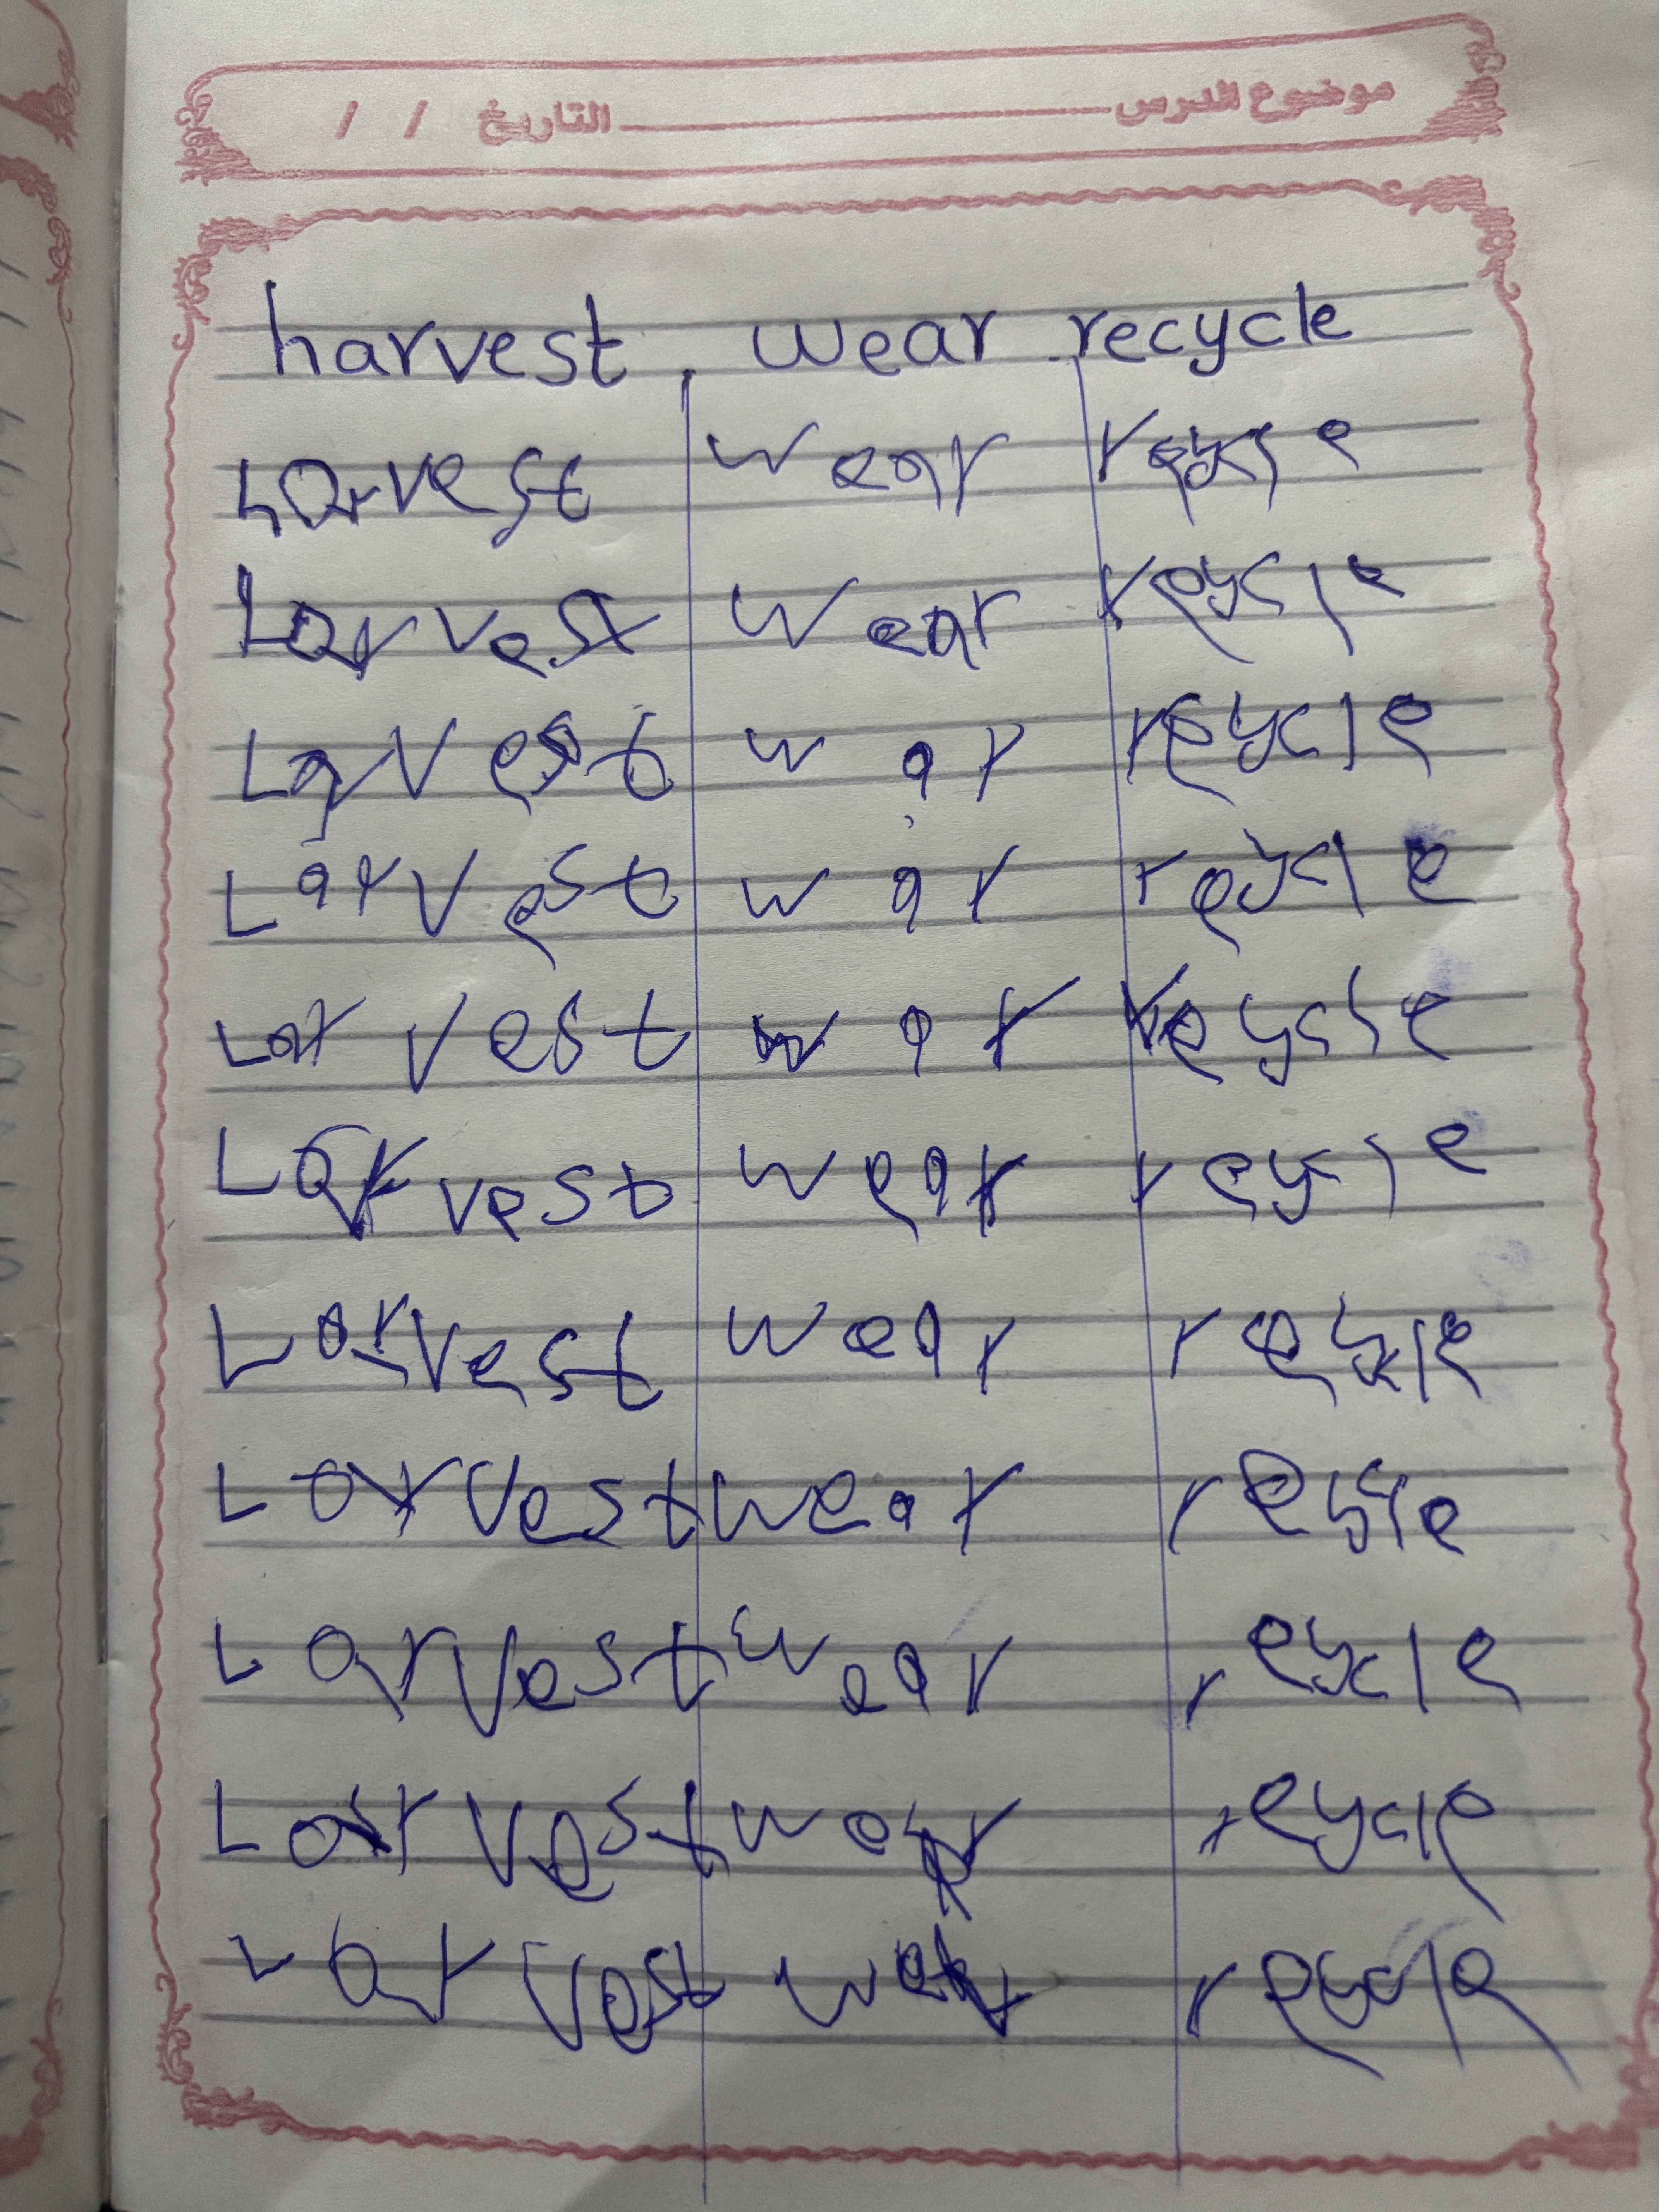 موضوع الدرس التاريخ / /
harvest, wear recycle
harvest wear reycle
Larvest wear reycle
Larvest war reycle
Larvest war reycle
Larvest war reycle
Larvest wear reycle
Larvest wear reycle
Larvest wear reycle
Larvest wear reycle
Larvest wear reycle
Larvest wear reycle